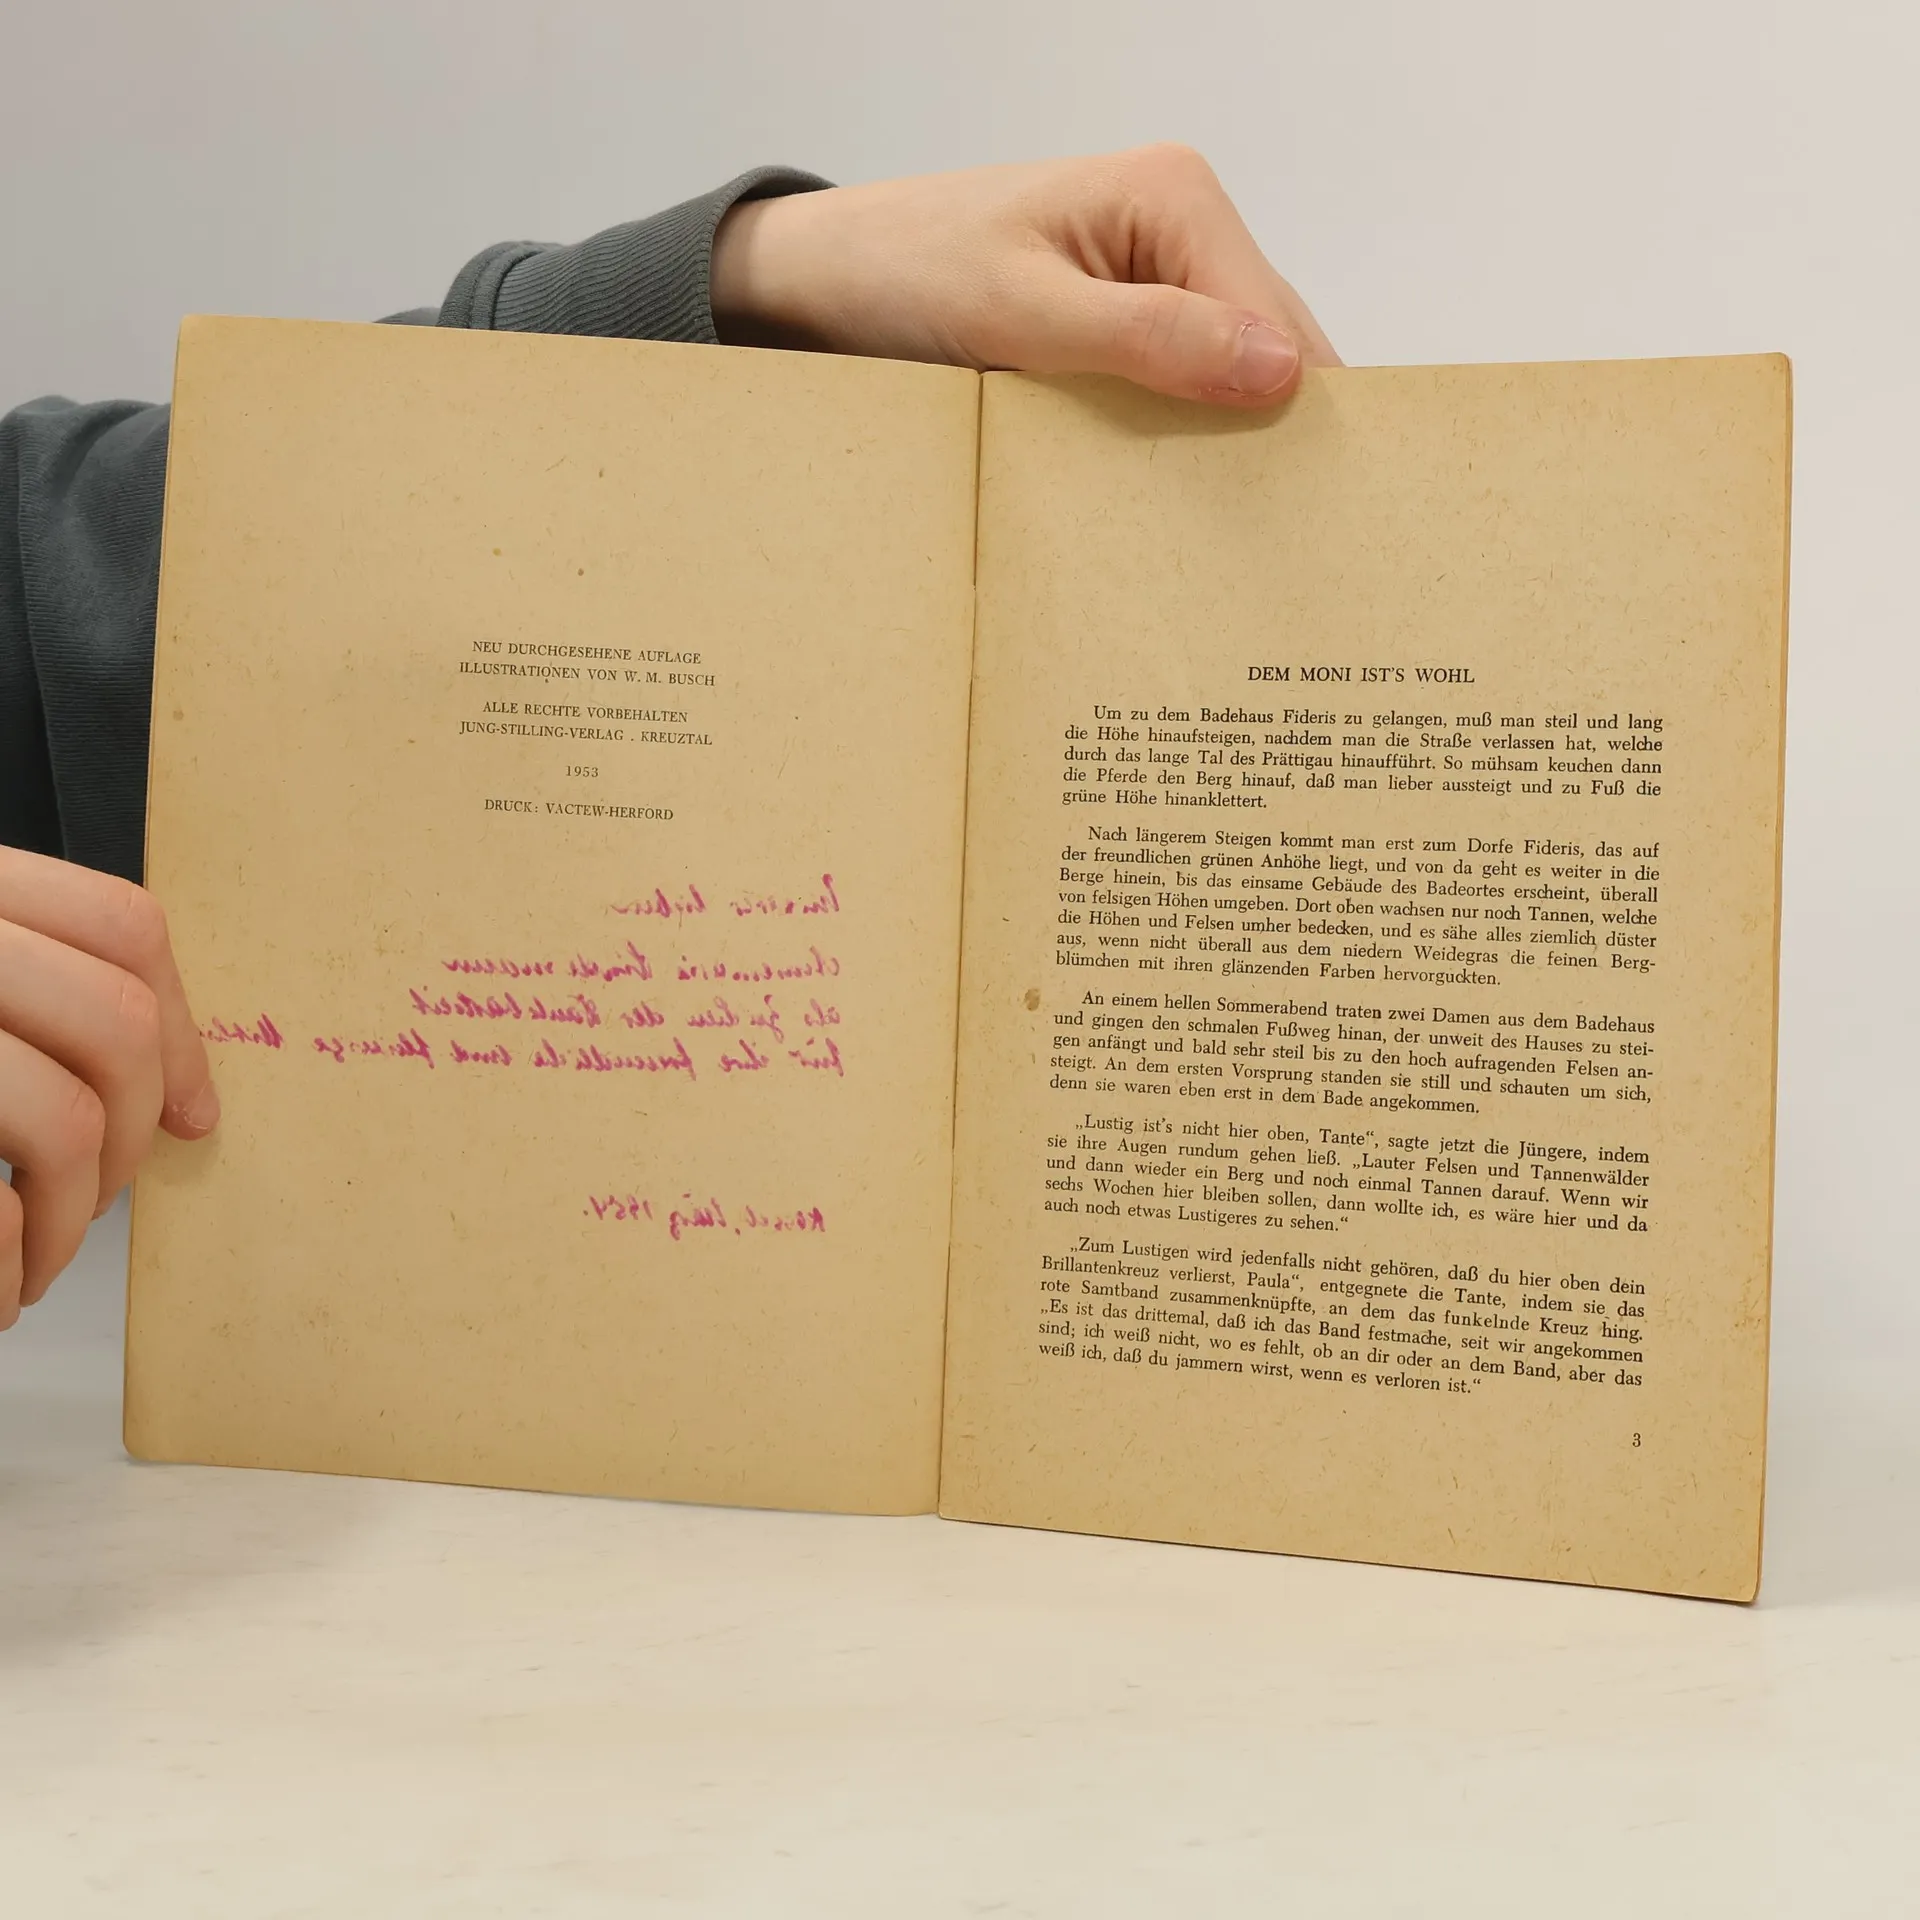 NEU DURCHGESEHENE AUFLAGE
ILLUSTRATIONEN VON W. M. BUSCH
ALLE RECHTE VORBEHALTEN
JUNG-STILLING-VERLAG . KREUZTAL
1953
DRUCK: VACTEW-HERFORD
als Zeichen der Dankbarkeit
für ihre freundliche und
März 1954.
DEM MONI IST'S WOHL
Um zu dem Badehaus Fideris zu gelangen, muß man steil und lang
die Höhe hinaufsteigen, nachdem man die Straße verlassen hat, welche
durch das lange Tal des Prättigau hinaufführt. So mühsam keuchen dann
die Pferde den Berg hinauf, daß man lieber aussteigt und zu Fuß die
grüne Höhe hinanklettert.
Nach längerem Steigen kommt man erst zum Dorfe Fideris, das auf
der freundlichen grünen Anhöhe liegt, und von da geht es weiter in die
Berge hinein, bis das einsame Gebäude des Badeortes erscheint, überall
von felsigen Höhen umgeben. Dort oben wachsen nur noch Tannen, welche
die Höhen und Felsen umher bedecken, und es sähe alles ziemlich düster
aus, wenn nicht überall aus dem niedern Weidegras die feinen Berg-
blümchen mit ihren glänzenden Farben hervorguckten.
An einem hellen Sommerabend traten zwei Damen aus dem Badehaus
und gingen den schmalen Fußweg hinan, der unweit des Hauses zu stei-
gen anfängt und bald sehr steil bis zu den hoch aufragenden Felsen an-
steigt. An dem ersten Vorsprung standen sie still und schauten um sich,
denn sie waren eben erst in dem Bade angekommen.
„Lustig ist's nicht hier oben, Tante“, sagte jetzt die Jüngere, indem
sie ihre Augen rundum gehen ließ. „Lauter Felsen und Tannenwälder
und dann wieder ein Berg und noch einmal Tannen darauf. Wenn wir
sechs Wochen hier bleiben sollen, dann wollte ich, es wäre hier und da
auch noch etwas Lustigeres zu sehen.“
„Zum Lustigen wird jedenfalls nicht gehören, daß du hier oben dein
Brillantenkreuz verlierst, Paula“, entgegnete die Tante, indem sie das
rote Samtband zusammenknüpfte, an dem das funkelnde Kreuz hing.
„Es ist das drittemal, daß ich das Band festmache, seit wir angekommen
sind; ich weiß nicht, wo es fehlt, ob an dir oder an dem Band, aber das
weiß ich, daß du jammern wirst, wenn es verloren ist.“
3